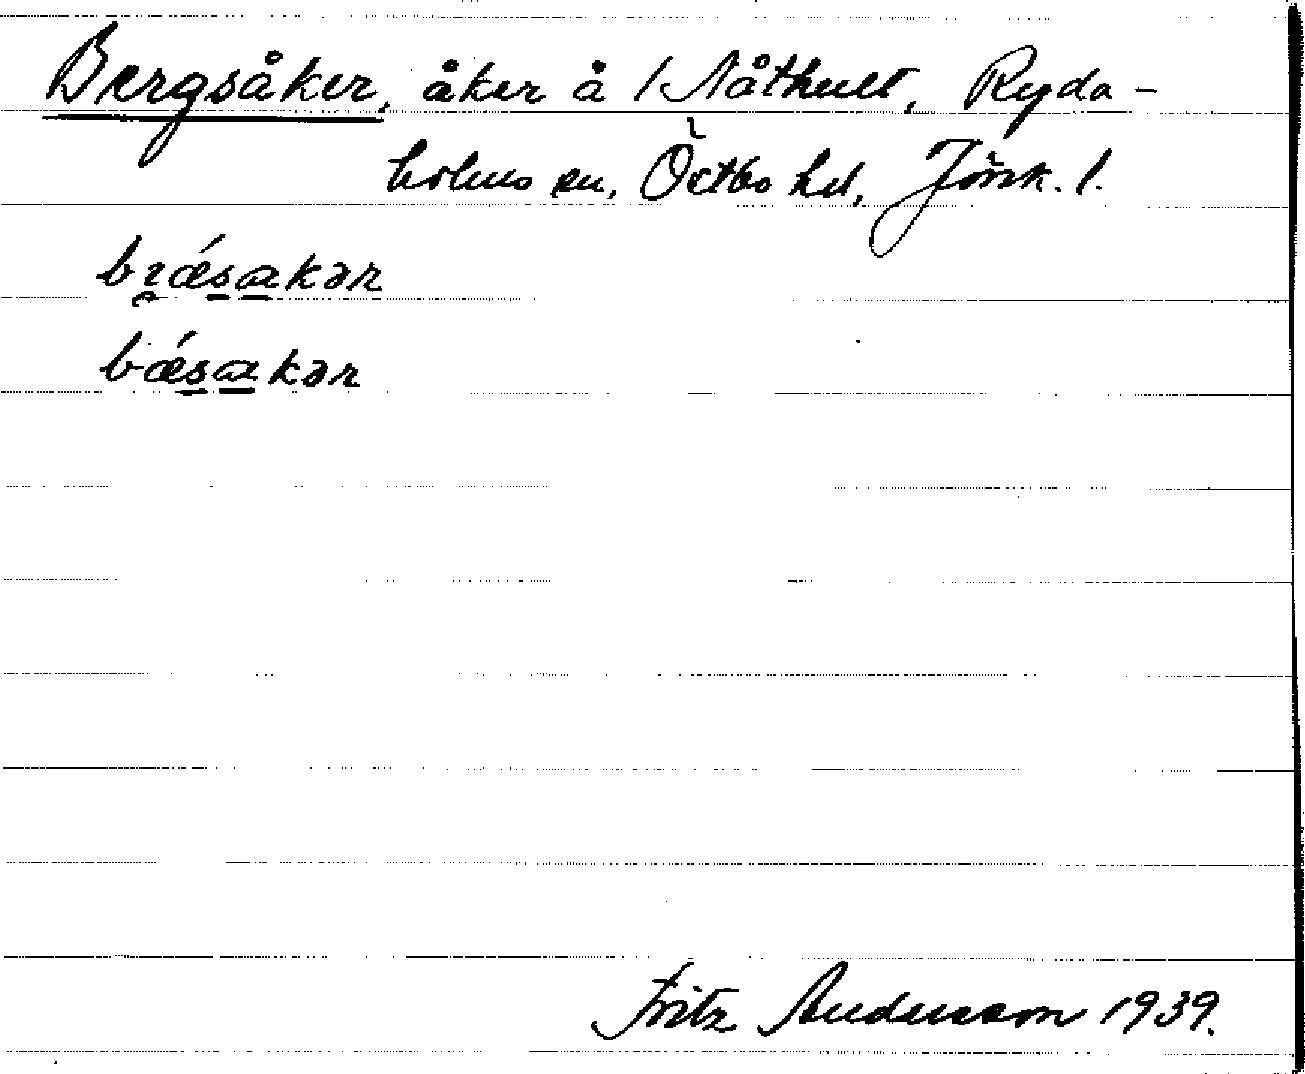 Bergsåker, åker å /Nåthult, Ryda-
holms sn, Östbo hd, Jönk. l.
brǽsakər
bǽsakər
Fritz Andersson 1939.